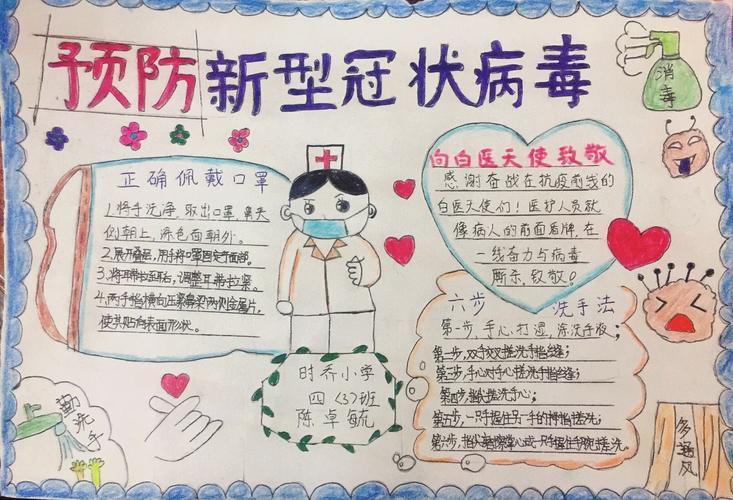 预防新型冠状病毒
消毒
正确佩戴口罩
1.将手洗净,取出口罩,鼻夹
侧朝上,深色面朝外。
2.展开叠层,用手将口罩固定于面部。
3.将耳带拉至耳后,调整耳带拉紧。
4.两手指横向压紧鼻梁两侧金属片,
使其贴有表面形状。
向白医天使致敬
感谢奋战在抗疫前线的
白医天使们!医护人员就
像病人的前面盾牌,在
一线奋力与病毒
厮杀,致敬!
六步 洗手法
第一步,手心打湿,涂洗手液;
第二步,双手交叉搓洗手指缝;
第三步,手心对手心搓洗手指缝;
第四步,指尖搓洗手心;
第五步,一只手握住另一手的拇指搓洗;
第六步,
一只手握住手腕搓洗
时乔小学
四〈3〉班
陈卓毓
勤洗手
多通风